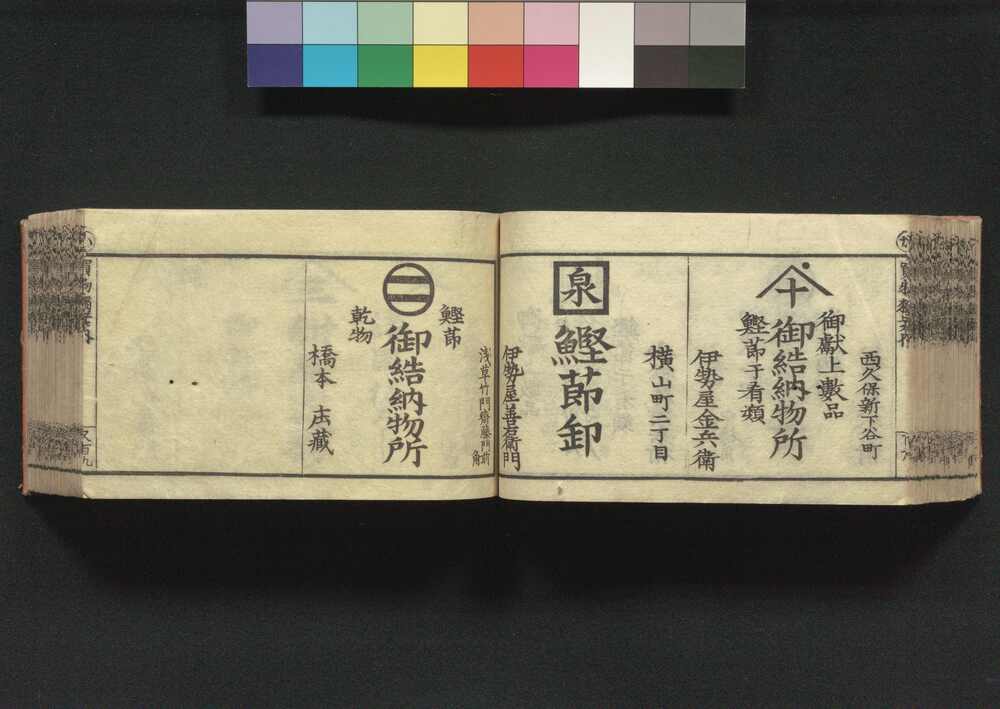 西久保新下谷町
御献上數品
十
御結納物所
鰹節干肴類
伊勢屋金兵衛
横山町二丁目
泉
鰹節卸
伊勢屋善右衛門
浅草竹門齋藤門前角
鰹節
二
御結納物所
乾物
橋本庄藏